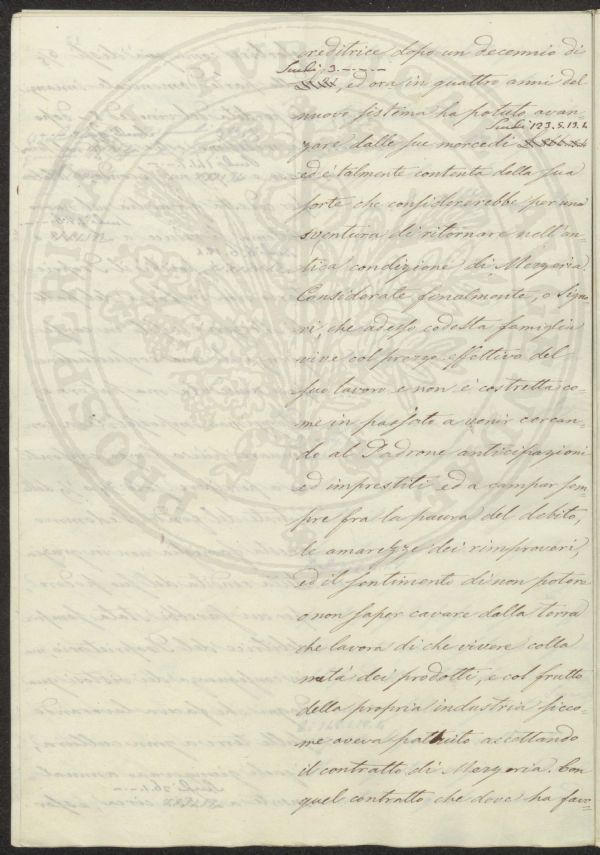 creditrice dopo un decennio di
Scudi 3.-.--
ed ora in quattro anni del
nuovo sistema ha potuto avan-
Scudi 123.5.13.4
zare dalle sue mercedi
ed è talmente contenta della sua
sorte che considererebbe per una
sventura di ritornare nell'an-
tica condizione di Mezzeria.
Considerate finalmente, o Signo-
ri, che adesso codesta famiglia
vive col prezzo effettivo del
suo lavoro e non è costretta co-
me in passato a venir cercan-
do al Padrone anticipazioni
ed imprestiti ed a campar sem-
pre fra la paura del debito,
le amarezze dei rimproveri,
ed il sentimento di non potere
o non saper cavare dalla terra
che lavora di che vivere colla
metà dei prodotti, e col frutto
della propria industria sicco-
me aveva pattuito accettando
il contratto di Mezzeria. Con
quel contratto che dove ha favo-
PROSPERITATI PUB